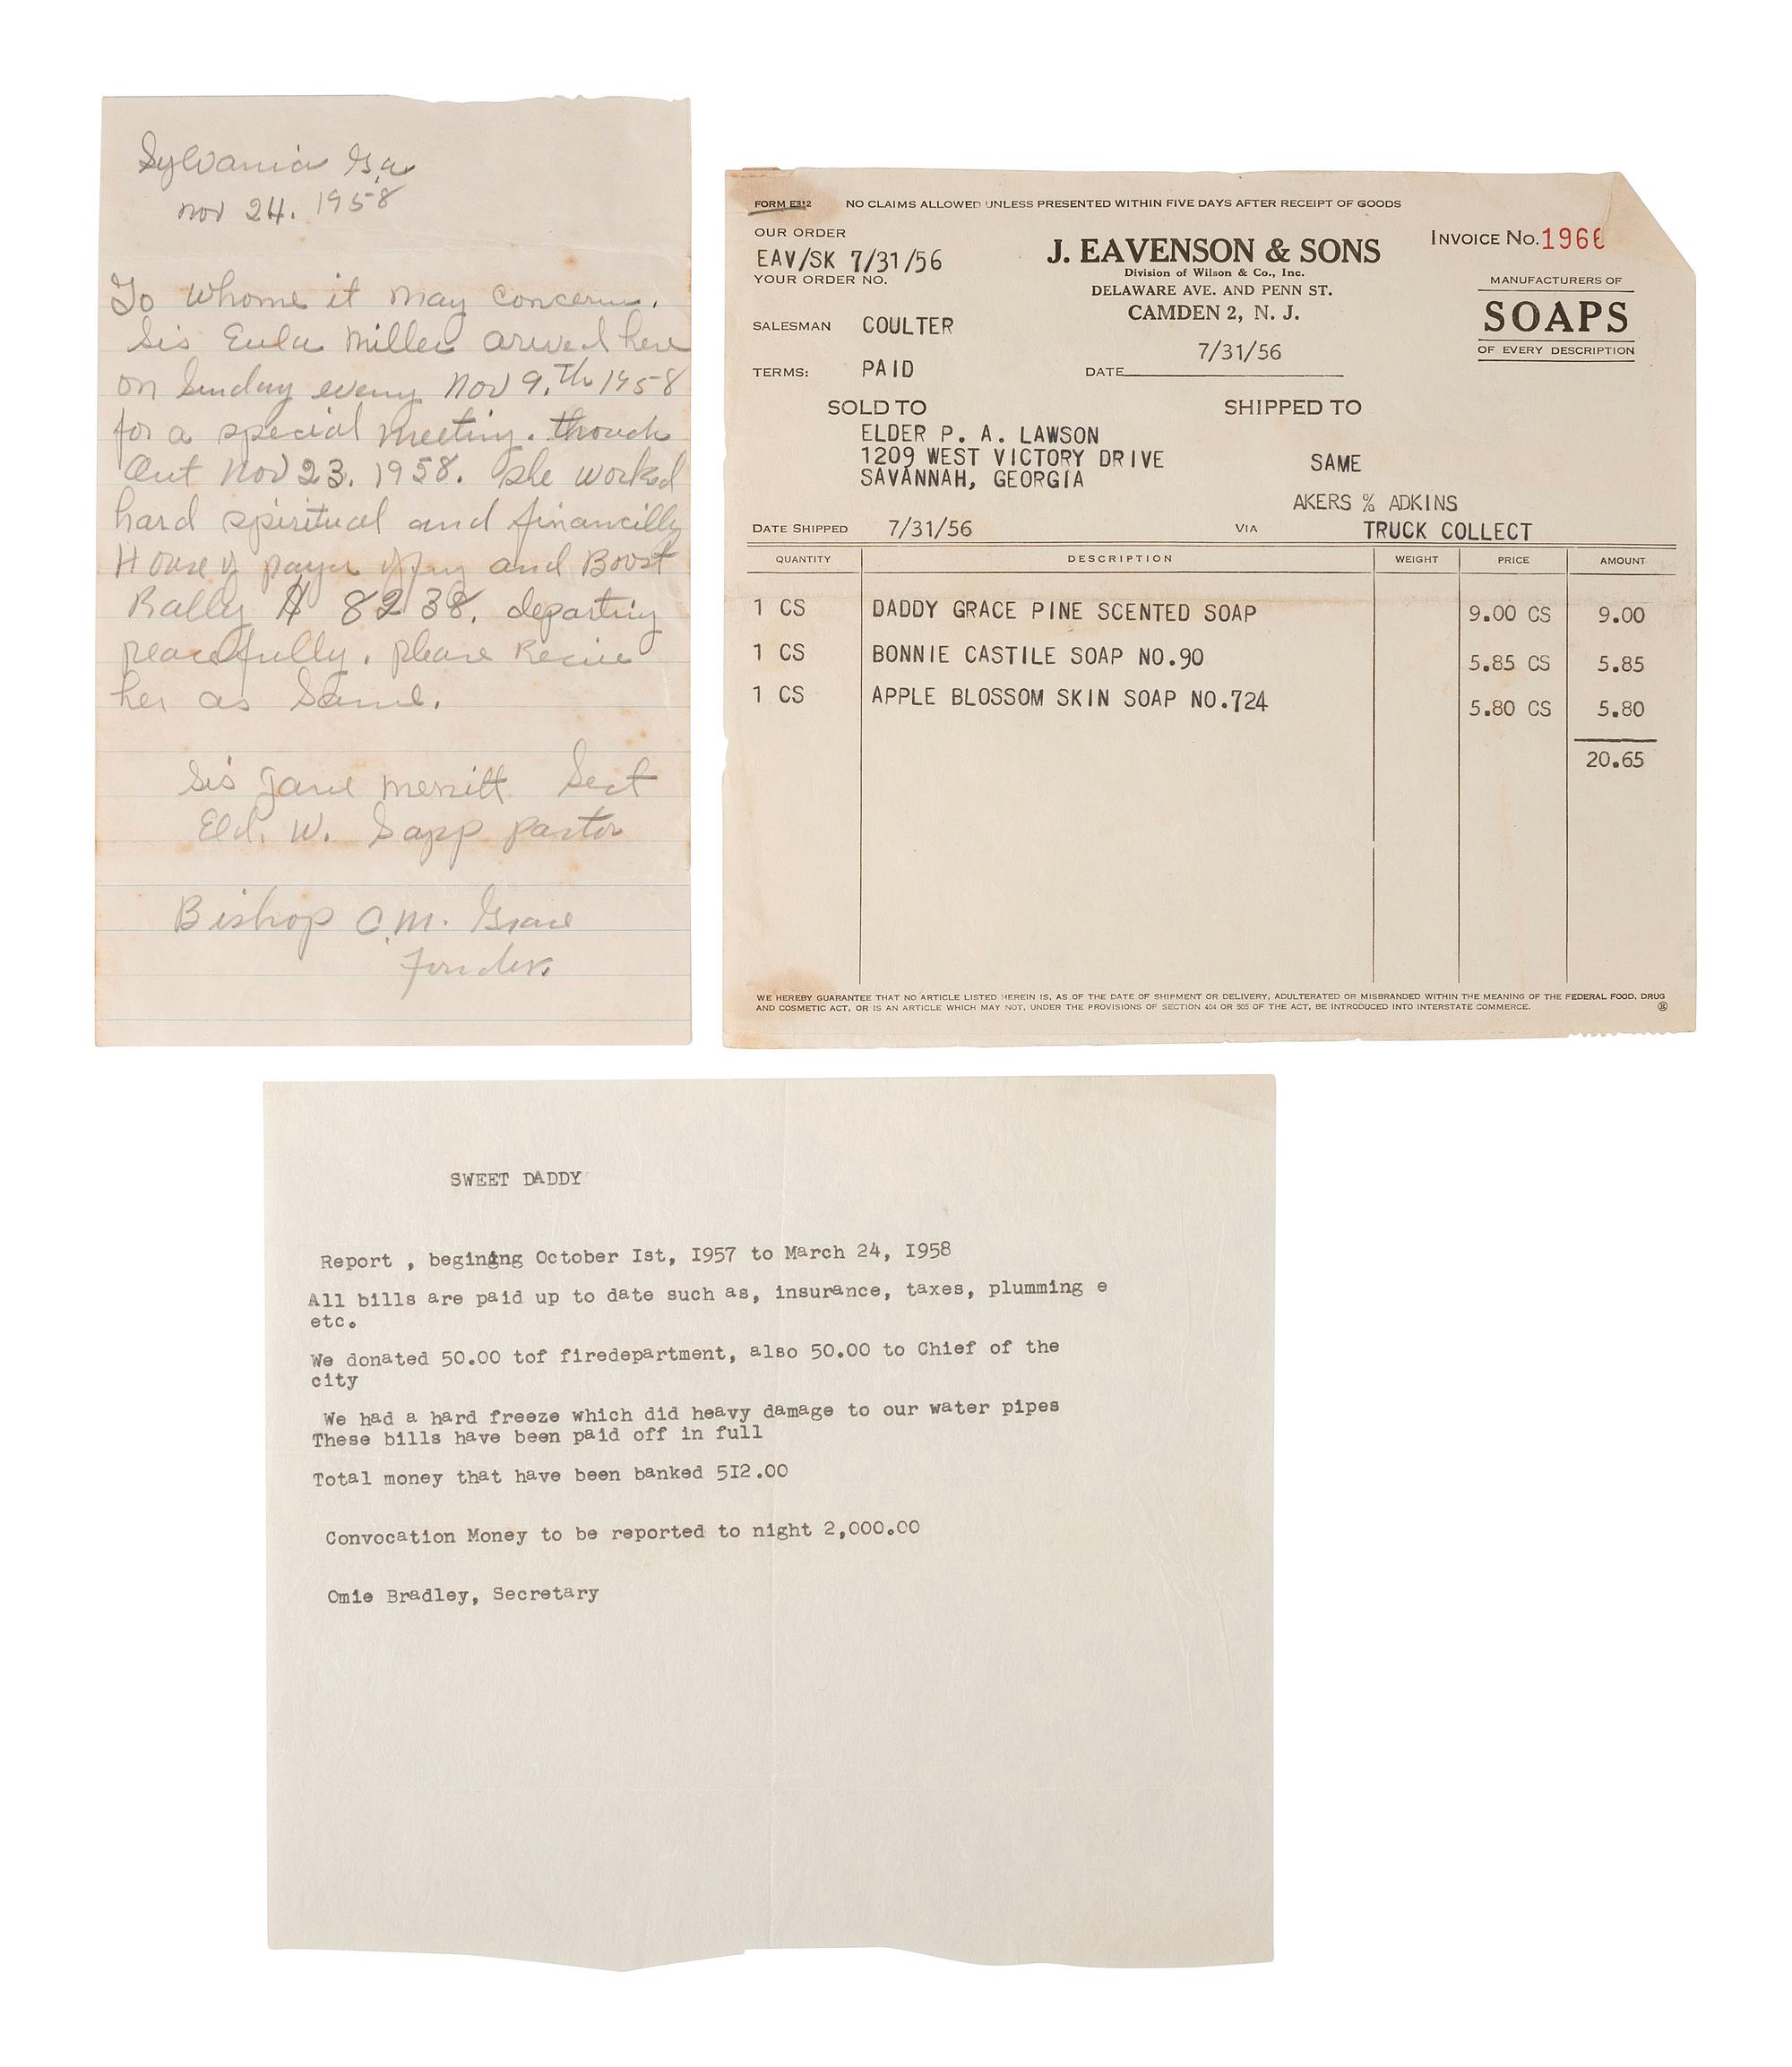 Sylvania Ga
Nov 24. 1958
To Whome it may concern.
Sis Eula Miller arived here
on Sunday eveny Nov 9.th 1958
for a special meeting. though
Out Nov 23. 1958. She worked
hard spiritual and financilly
House of payer and Boost
Rally $ 82 38. departing
peacefully. please Recive
her as Same.
Sis Jane Merritt Sect
Eld. W. Sapp pastor
Bishop C.M. Grace
Founder.
FORM E312 NO CLAIMS ALLOWED UNLESS PRESENTED WITHIN FIVE DAYS AFTER RECEIPT OF GOODS
OUR ORDER
EAV/SK 7/31/56
YOUR ORDER NO.
J. EAVENSON & SONS
Division of Wilson & Co., Inc.
DELAWARE AVE. AND PENN ST.
CAMDEN 2, N. J.
INVOICE NO. 1966
MANUFACTURERS OF
SOAPS
OF EVERY DESCRIPTION
SALESMAN COULTER
7/31/56
TERMS: PAID DATE
SOLD TO SHIPPED TO
ELDER P. A. LAWSON
1209 WEST VICTORY DRIVE SAME
SAVANNAH, GEORGIA
AKERS % ADKINS
DATE SHIPPED 7/31/56 VIA TRUCK COLLECT
QUANTITY DESCRIPTION WEIGHT PRICE AMOUNT
1 CS DADDY GRACE PINE SCENTED SOAP 9.00 CS 9.00
1 CS BONNIE CASTILE SOAP NO.90 5.85 CS 5.85
1 CS APPLE BLOSSOM SKIN SOAP NO.724 5.80 CS 5.80
20.65
WE HEREBY GUARANTEE THAT NO ARTICLE LISTED HEREIN IS, AS OF THE DATE OF SHIPMENT OR DELIVERY, ADULTERATED OR MISBRANDED WITHIN THE MEANING OF THE FEDERAL FOOD, DRUG
AND COSMETIC ACT, OR IS AN ARTICLE WHICH MAY NOT, UNDER THE PROVISIONS OF SECTION 404 OR 505 OF THE ACT, BE INTRODUCED INTO INTERSTATE COMMERCE.
SWEET DADDY
Report , begining October Ist, I957 to March 24, I958
All bills are paid up to date such as, insurance, taxes, plumming e
etc.
We donated 50.00 tof firedepartment, also 50.00 to Chief of the
city
We had a hard freeze which did heavy damage to our water pipes
These bills have been paid off in full
Total money that have been banked 5I2.00
Convocation Money to be reported to night 2,000.00
Omie Bradley, Secretary